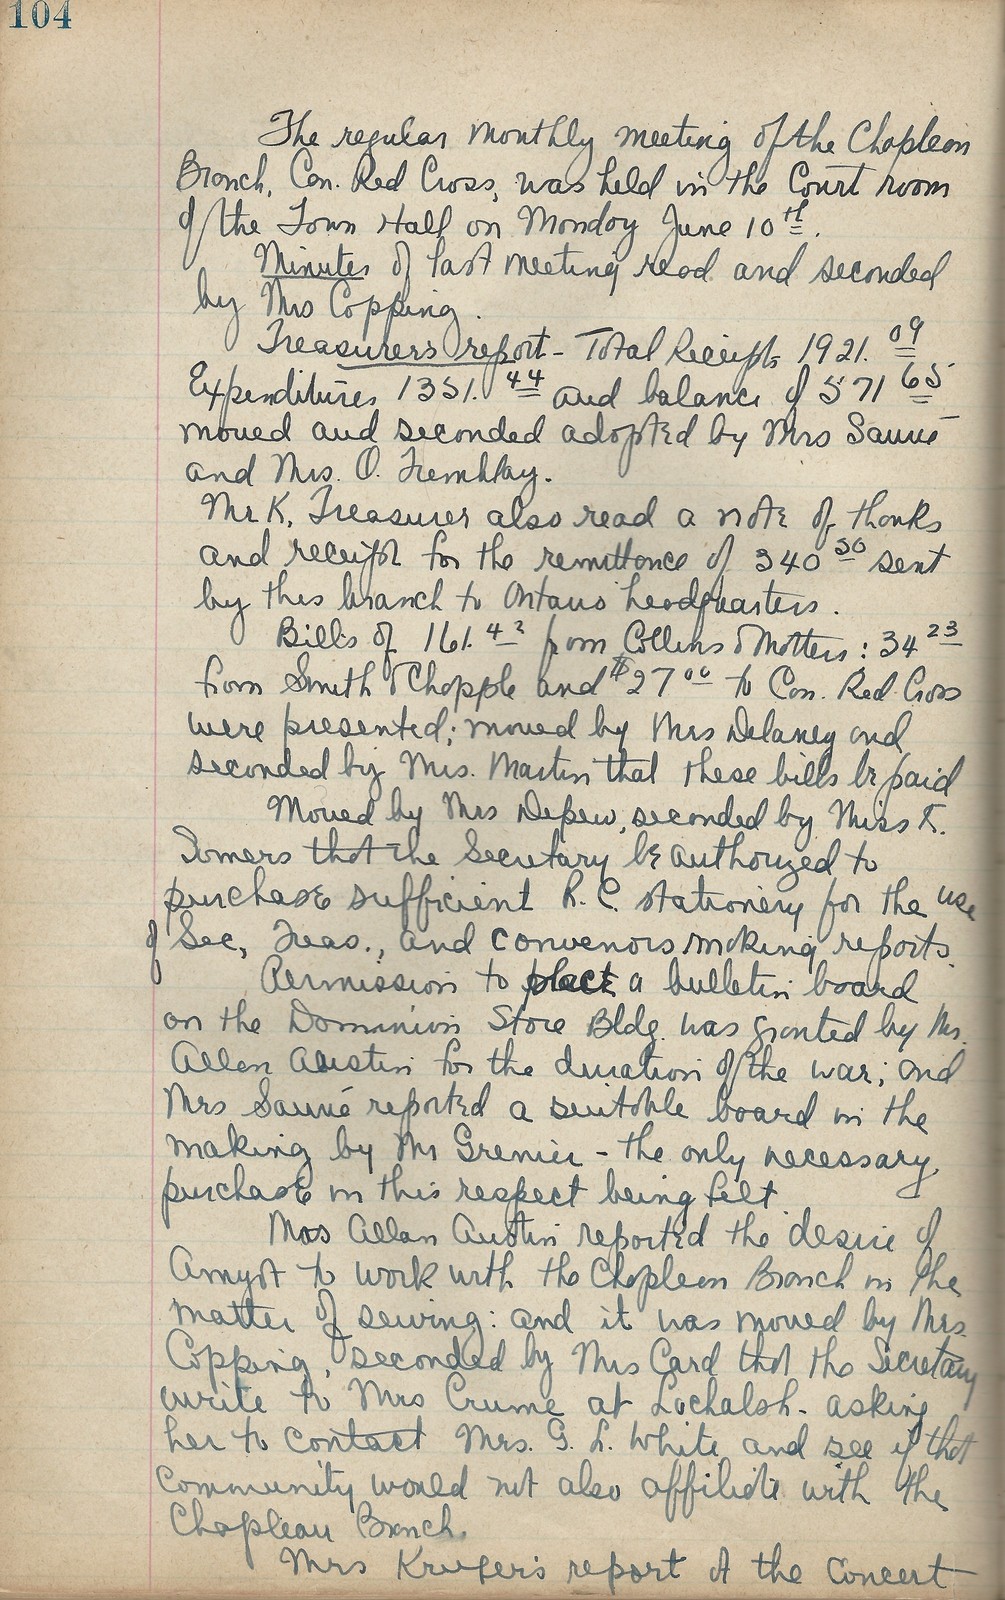 104
The regular monthly meeting of the Chapleau
Branch, Can. Red Cross, was held in the Court room
of the Town Hall on Monday June 10th.
Minutes of last meeting read and seconded
by Mrs Copping.
Treasurers report - Total Receipts 1921.09
Expenditures 1351.44 and balance of 571 65
moved and seconded adopted by Mrs Sauvé
and Mrs. O. Tremblay.
Mr K, Treasurer also read a note of thanks
and receipt for the remittance of 340 50 sent
by this branch to Ontario headquarters.
Bills of 161.42 from Collins & Motters: 34 23
from Smith & Chapple and $27 00 to Can. Red Cross
were presented; moved by Mrs Delaney and
seconded by Mrs. Martin that these bills be paid
Moved by Mrs Depew, seconded by Miss
Somers that the Secretary be authorized to
purchase sufficient R. C. stationery for the use
of Sec, Treas., and convenors making reports.
Permission to place a bulletin board
on the Dominion Store Bldg. was granted by Mr.
Allan Austin for the duration of the war; and
Mrs Sauvé reported a suitable board in the
making by Mr Grenier - the only necessary
purchase in this respect being felt.
Mrs Allan Austin reported the desire of
Amyot to work with the Chapleau Branch in the
matter of sewing: and it was moved by Mrs.
Copping, seconded by Mrs Card that the Secretary
write to Mrs Crume at Lochalsh - asking
her to contact Mrs. G. L. White and see if that
community would not also affiliate with the
Chapleau Branch.
Mrs Kruger's report of the Concert